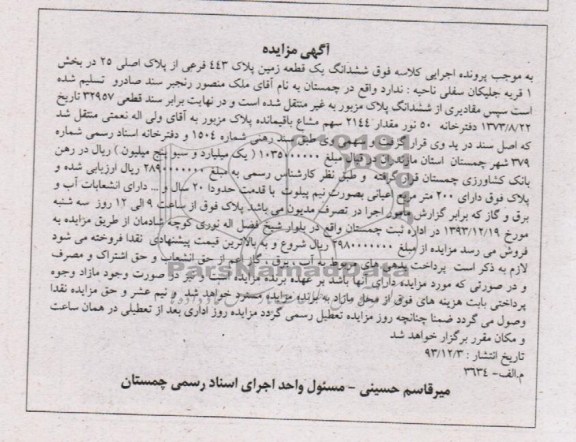 آگهی مزایده
به موجب پرونده اجرایی کلاسه فوق ششدانگ یک قطعه زمین پلاک ۴۴۳ فرعی از پلاک اصلی ۲۵ در بخش
۱ قریه جلیکان سفلی ناحیه : ندارد واقع در چمستان به نام آقای ملک منصور رنجبر سند صادرو تسلیم شده
است سپس مقادیری از ششدانگ پلاک مزبور به غیر منتقل شده است و در نهایت برابر سند قطعی ۳۲۹۵۷ تاریخ
۱۳۷۳/۸/۲۲ دفترخانه ۵۰ نور مقدار ۲۱۴۴ سهم مشاع باقیمانده پلاک مزبور به آقای ولی اله نعمتی منتقل شد
که اصل سند در ید وی قرار گرفت و سهمی وی طبق سند رهنی شماره ۱۵۰۴ و دفترخانه اسناد رسمی شماره
۳۷۹ شهر چمستان استان مازندران در قبال مبلغ ۱۰۳۵۰۰۰۰۰۰ ( یک میلیارد و سیو پنج میلیون ) ریال در رهن
بانک کشاورزی چمستان قرار گرفته و طبق نظر کارشناس رسمی به مبلغ ۲۸۹۰۰۰۰۰۰۰ ریال ارزیابی شده و
پلاک فوق دارای ۲۰۰ متر مربع اعیانی بصورت نیم پیلوت با قدمت حدودا ۲۰ سال و ... دارای انشعابات آب و
برق و گاز که برابر گزارش مامور اجرا در تصرف مدیون می باشد پلاک فوق از ساعت ۹ الی ۱۲ روز سه شنبه
مورخ ۱۳۹۳/۱۲/۱۹ در اداره ثبت چمستان واقع در بلوار شیخ فضل اله نوری کوچه شادمان از طریق مزایده به
فروش می رسد مزایده از مبلغ ۲۹۸۰۰۰۰۰۰۰ ریال شروع و به بالاترین قیمت پیشنهادی نقدا فروخته می شود
لازم به ذکر است پرداخت بدهی های مربوط به آب ، برق ، گاز اعم از حق انشعاب و حق اشتراک و مصرف
و در صورتی که مورد مزایده دارای آنها باشد بر عهده برنده مزایده است و نیز در صورت وجود مازاد وجوه
پرداختی بابت هزینه های فوق از محل مازاد به برنده مزایده مسترد خواهد شد و نیم عشر و حق مزایده نقدا
وصول می گردد ضمنا چنانچه روز مزایده تعطیل رسمی گردد مزایده روز اداری بعد از تعطیلی در همان ساعت
و مکان مقرر برگزار خواهد شد
تاریخ انتشار : ۹۳/۱۲/۳
م.الف- ۳۶۳۴
میرقاسم حسینی - مسئول واحد اجرای اسناد رسمی چمستان
ParsNamadData